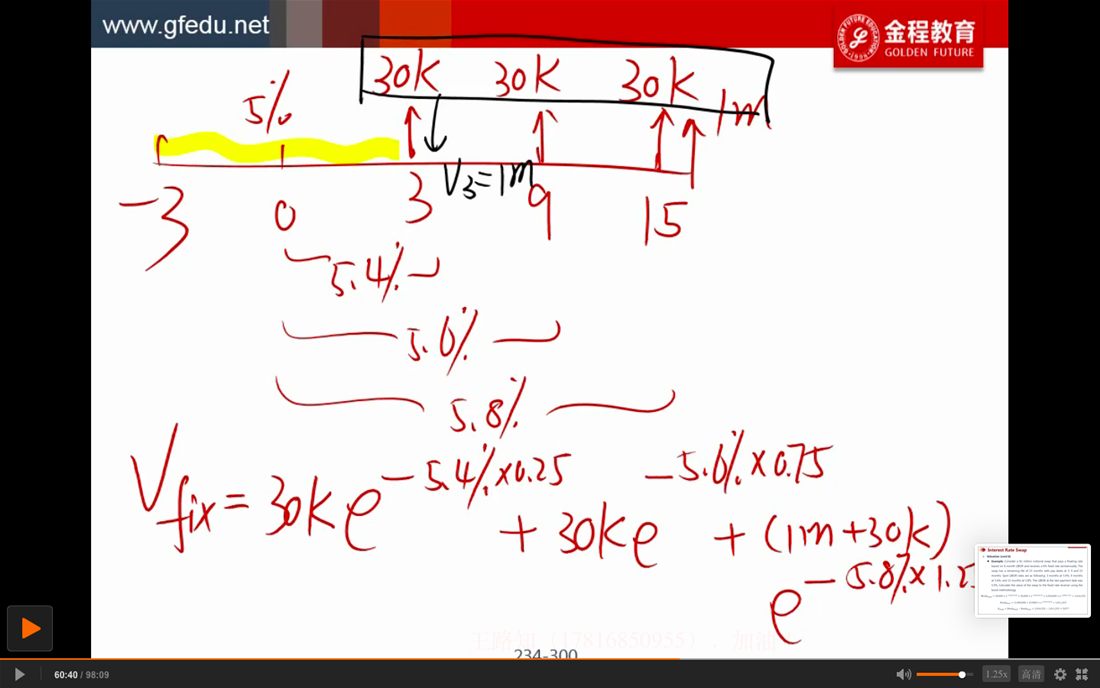 www.gfedu.net
金程教育
GOLDEN FUTURE
30K 30K 30K 1m
5%
V3=1m
-3 0 3 9 15
5.4%
5.6%
5.8%
Vfix = 30K e -5.4%×0.25 + 30K e -5.6%×0.75 + (1m+30K) e -5.8%×1.25
Interest Rate Swap
王路知（17816850955），加油
234-300
60:40 / 98:09
1.25x
高清